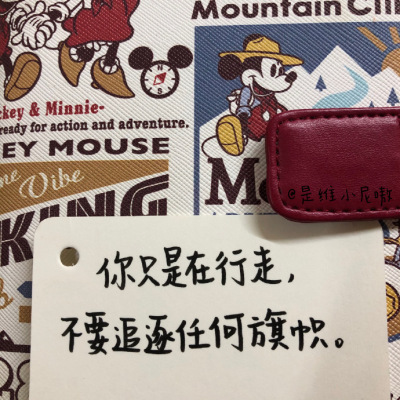 Mountain Cli
-ckey & Minnie-
ready for action and adventure.
EY MOUSE
Vibe
KING
Mo
@是维小尼嗷
你只是在行走，
不要追逐任何旗帜。